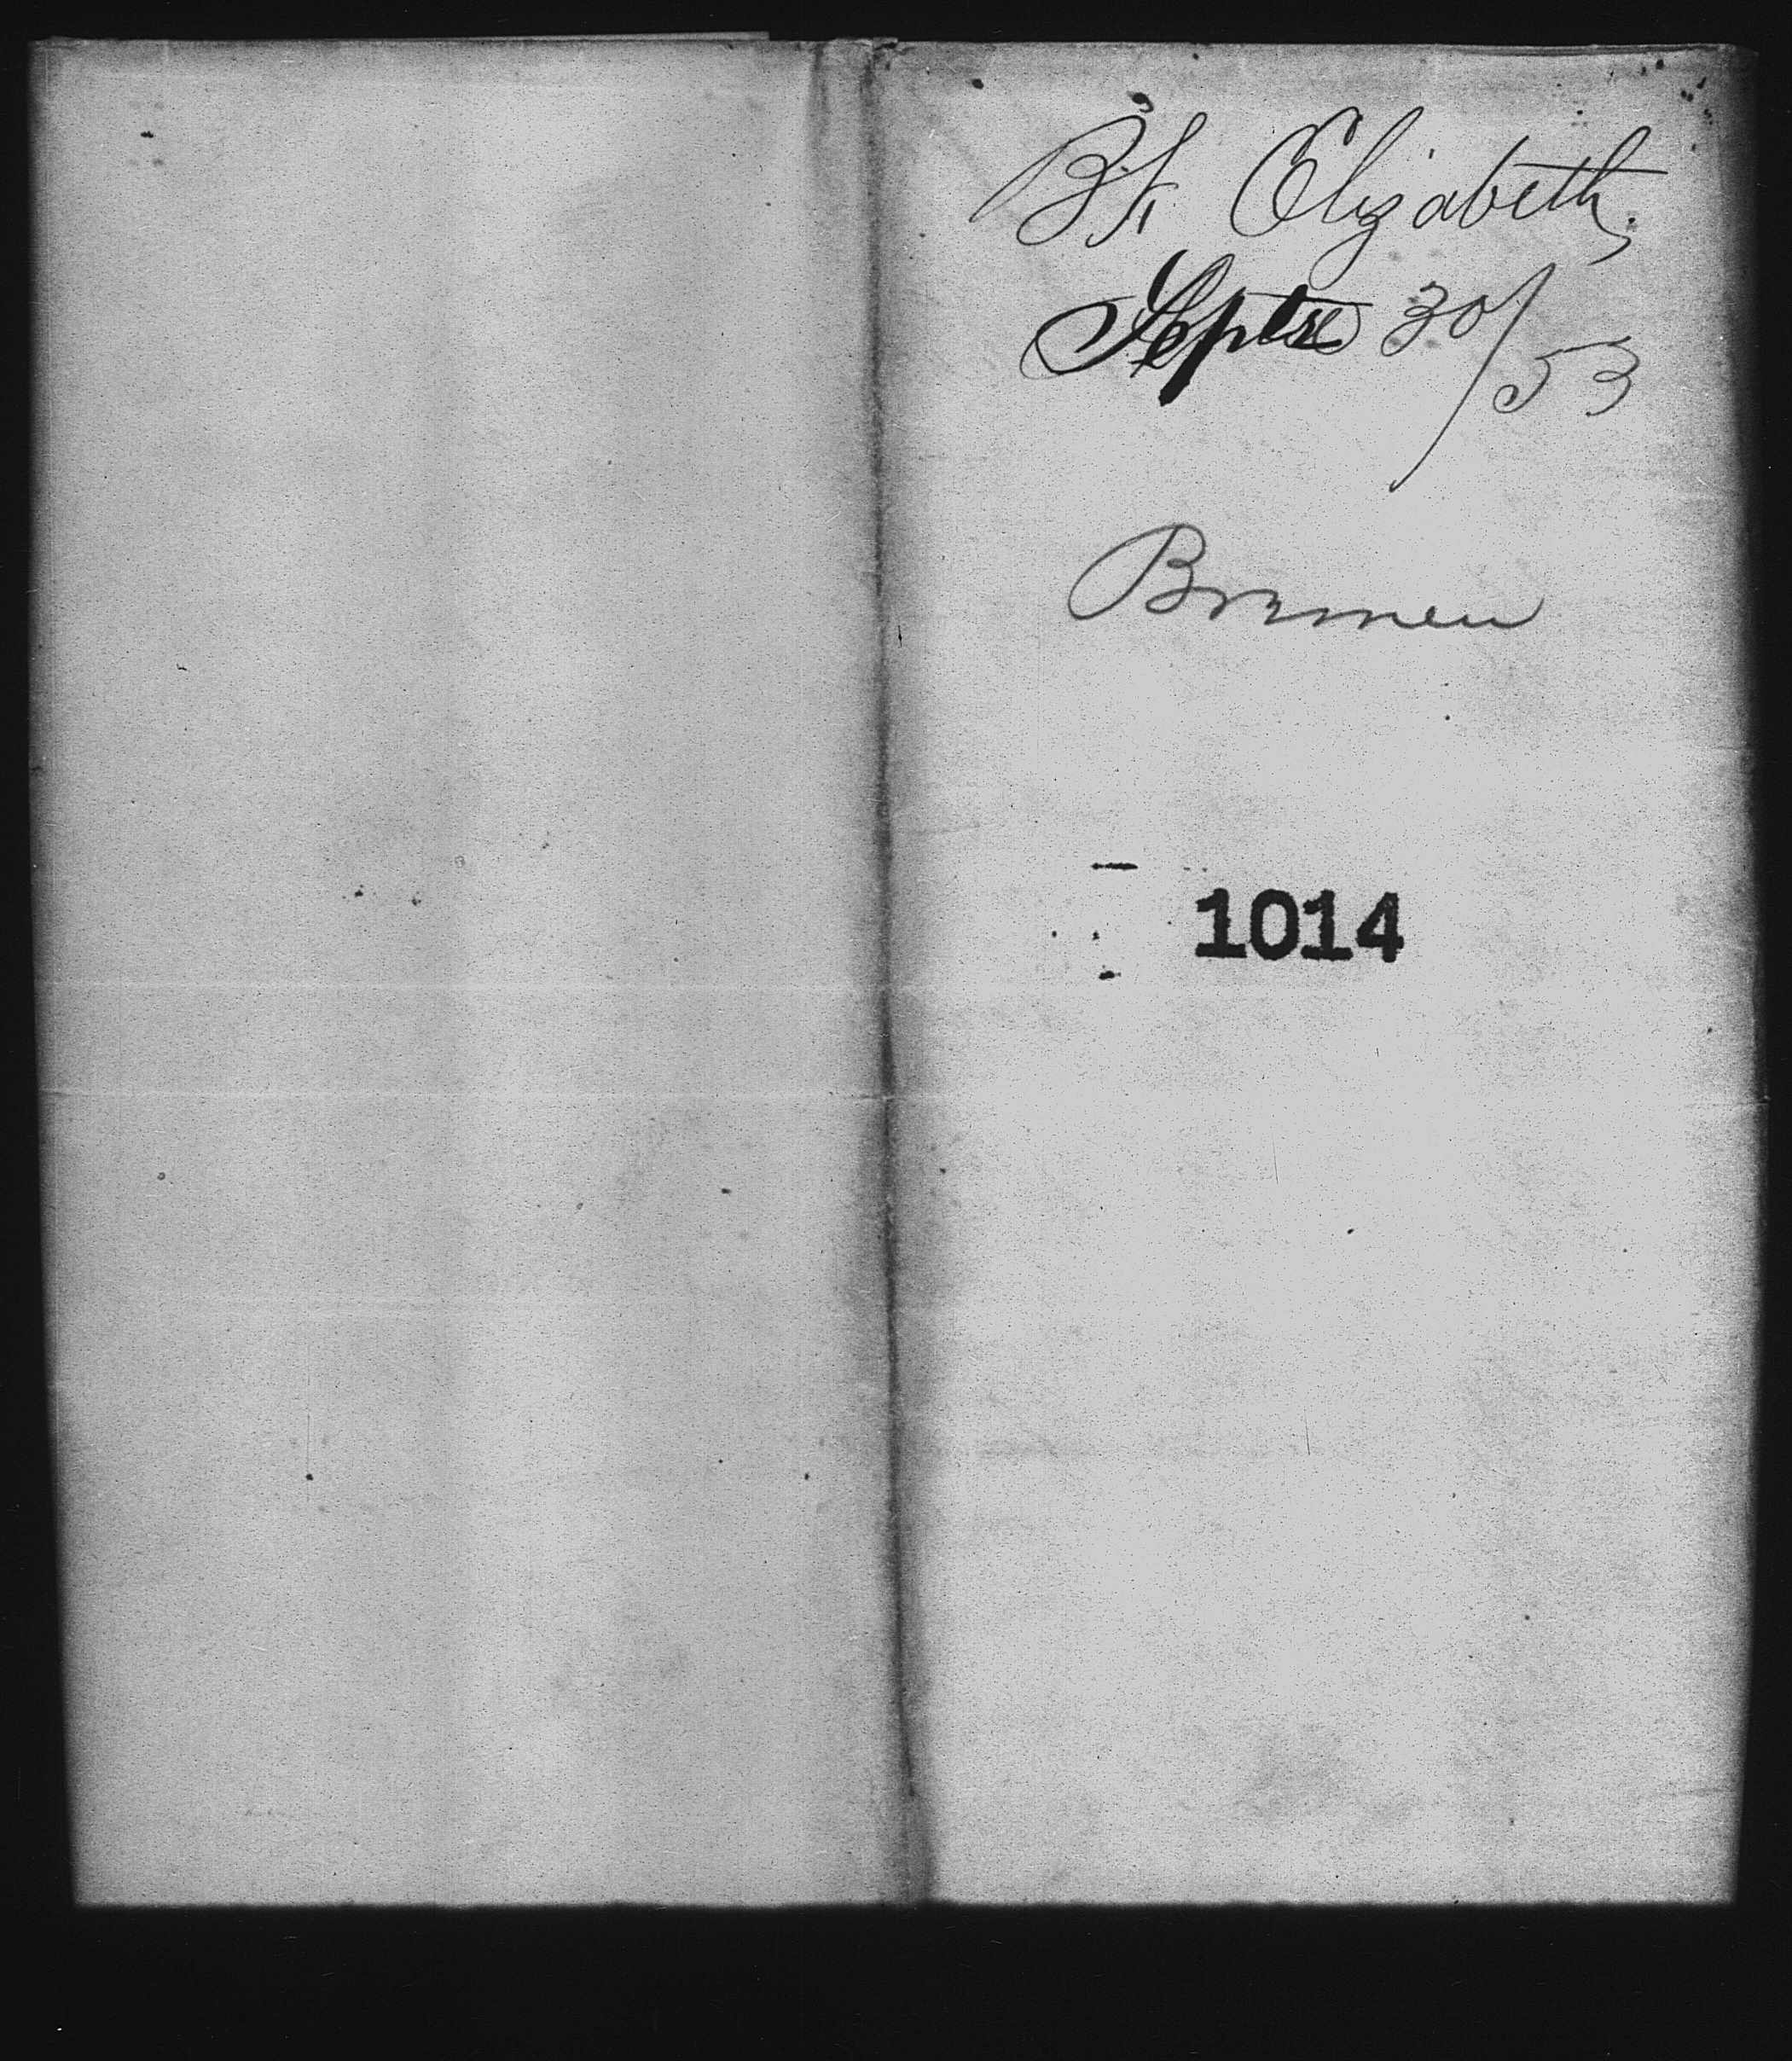 Bk Elizabeth
Septre 30/53
Bremen
1014